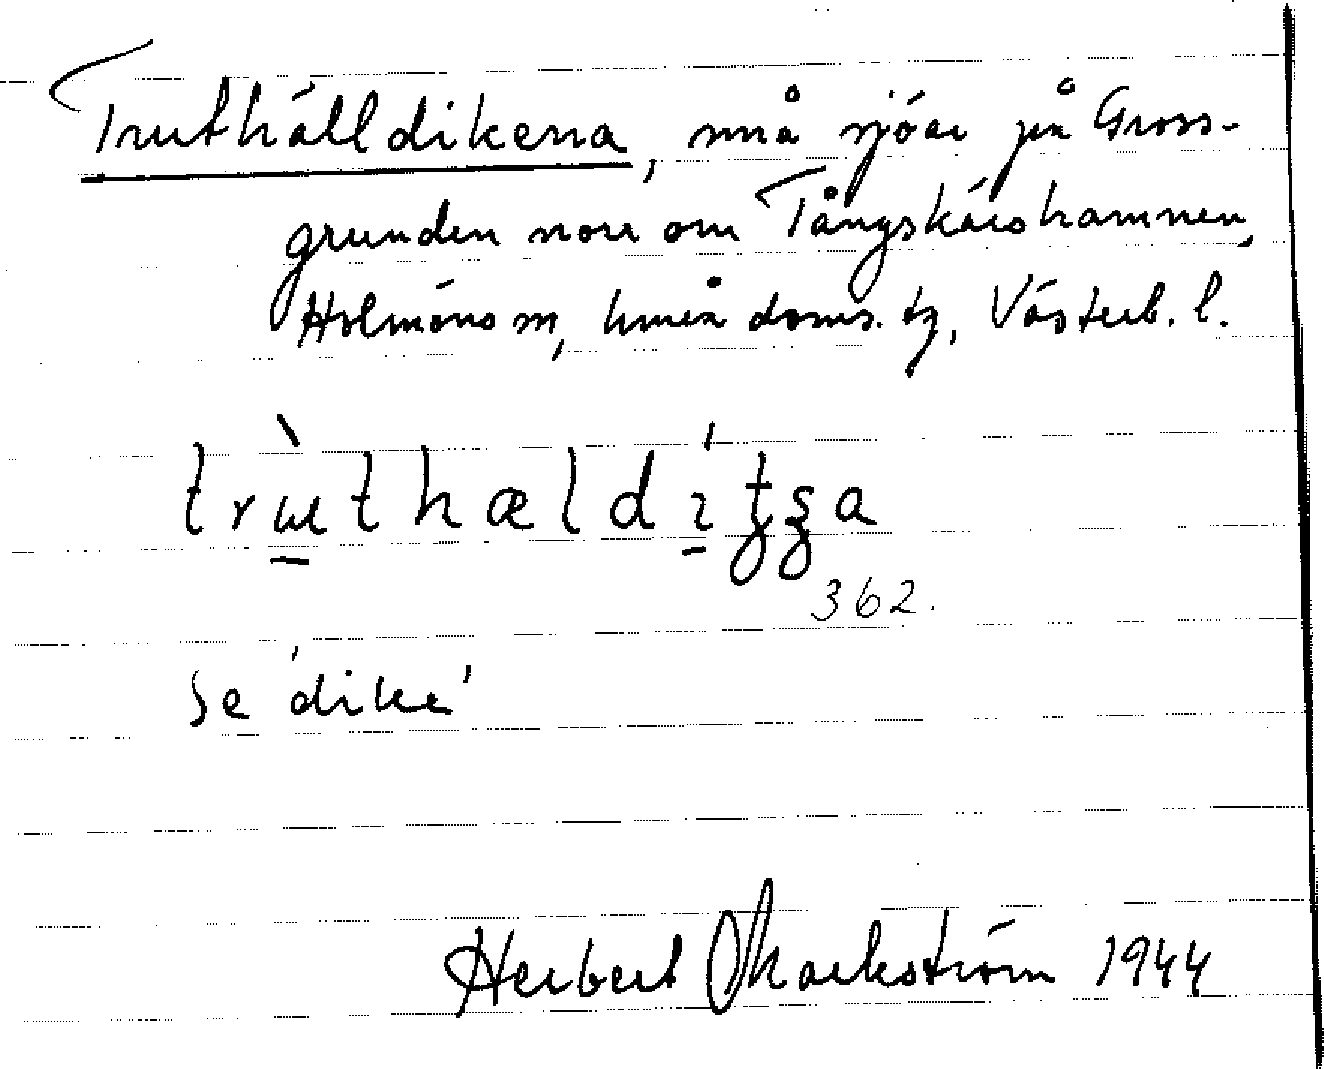 Truthälldikena, små sjöar på Gross-
grunden norr om Tångskärshamnen,
Holmöns sn, Umeå doms. tg, Västerb. l.
trùthældítʂa
362.
Se 'dike'
Herbert Markström 1944